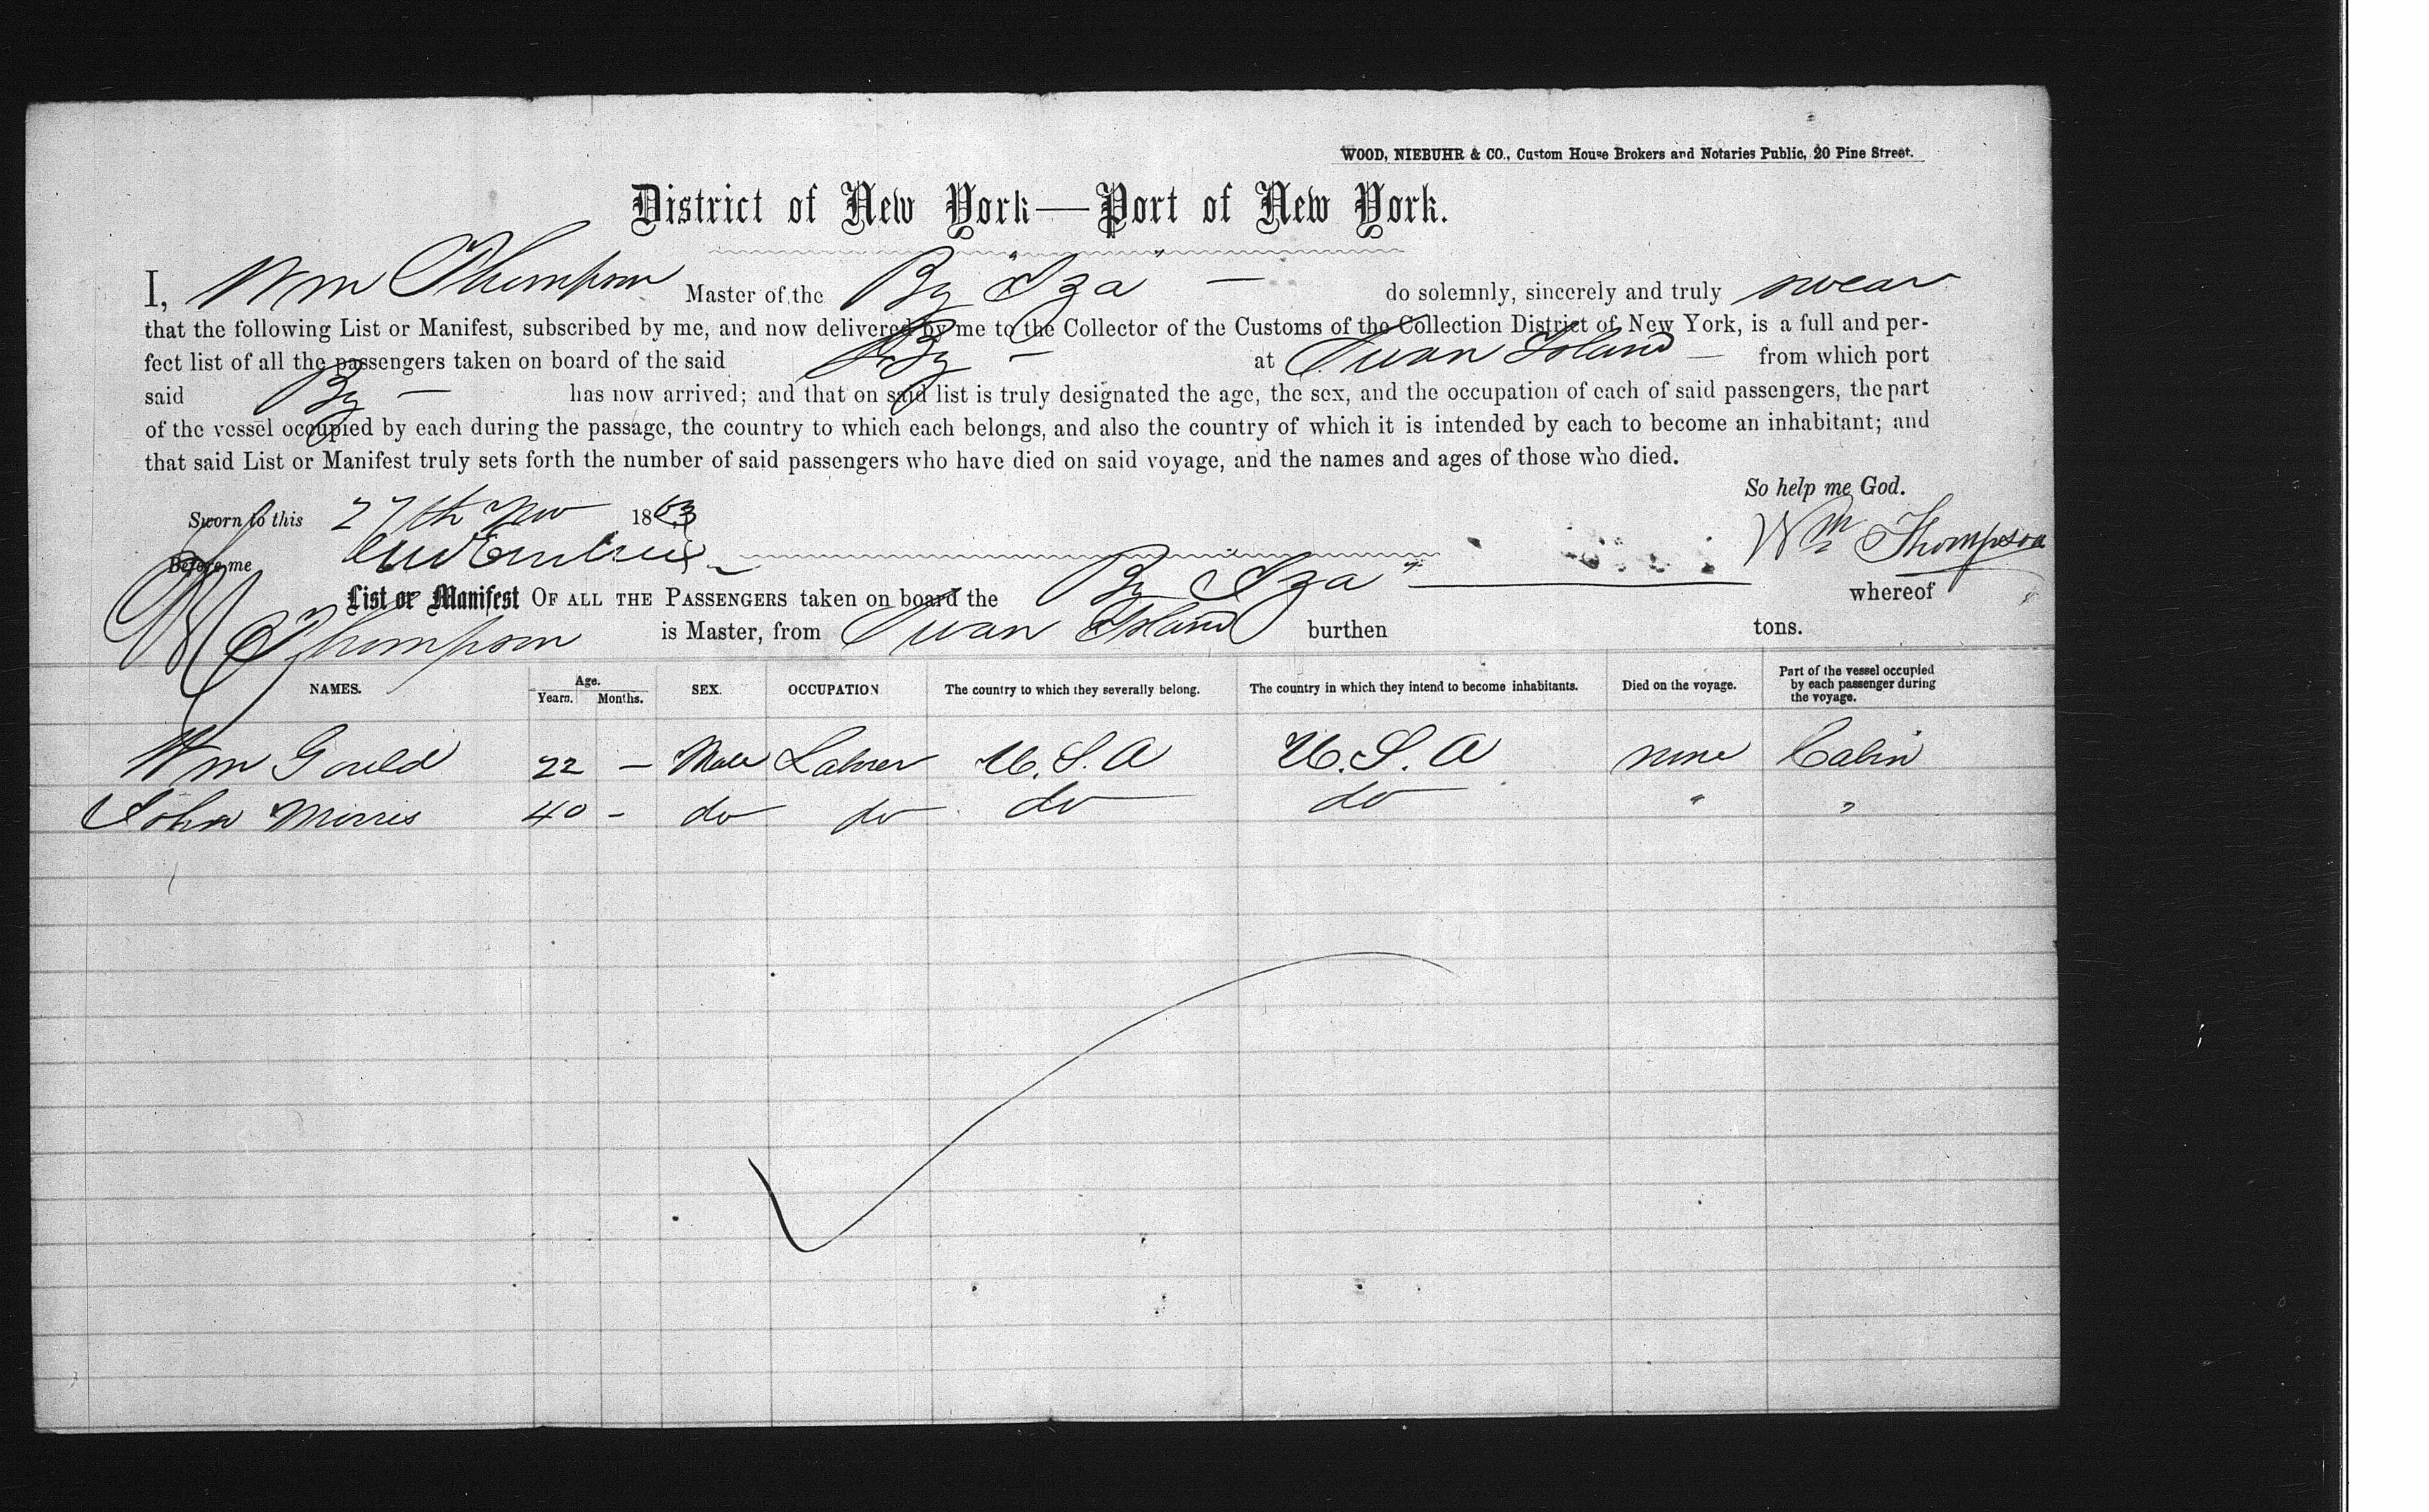 WOOD, NIEBUHR & CO., Custom House Brokers and Notaries Public, 20 Pine Street.
District of New York—Port of New York.
I, Wm Thompson Master of the Bg "Iza" — do solemnly, sincerely and truly swear
that the following List or Manifest, subscribed by me, and now delivered by me to the Collector of the Customs of the Collection District of New York, is a full and per-
fect list of all the passengers taken on board of the said Bg — at Swan Island — from which port
said Bg — has now arrived; and that on said list is truly designated the age, the sex, and the occupation of each of said passengers, the part
of the vessel occupied by each during the passage, the country to which each belongs, and also the country of which it is intended by each to become an inhabitant; and
that said List or Manifest truly sets forth the number of said passengers who have died on said voyage, and the names and ages of those who died.
So help me God.
Sworn to this 27th Nov 1863
Wm Thompson
Before me
List or Manifest OF ALL THE PASSENGERS taken on board the Bg Iza" whereof
W Thompson is Master, from Swan Island burthen tons.
NAMES. Age. Years. Months. SEX. OCCUPATION The country to which they severally belong. The country in which they intend to become inhabitants. Died on the voyage. Part of the vessel occupied by each passenger during the voyage.
Wm Gould 22 — Male Laborer U.S.A U.S.A none Cabin
John Morris 40 - do do do do " "